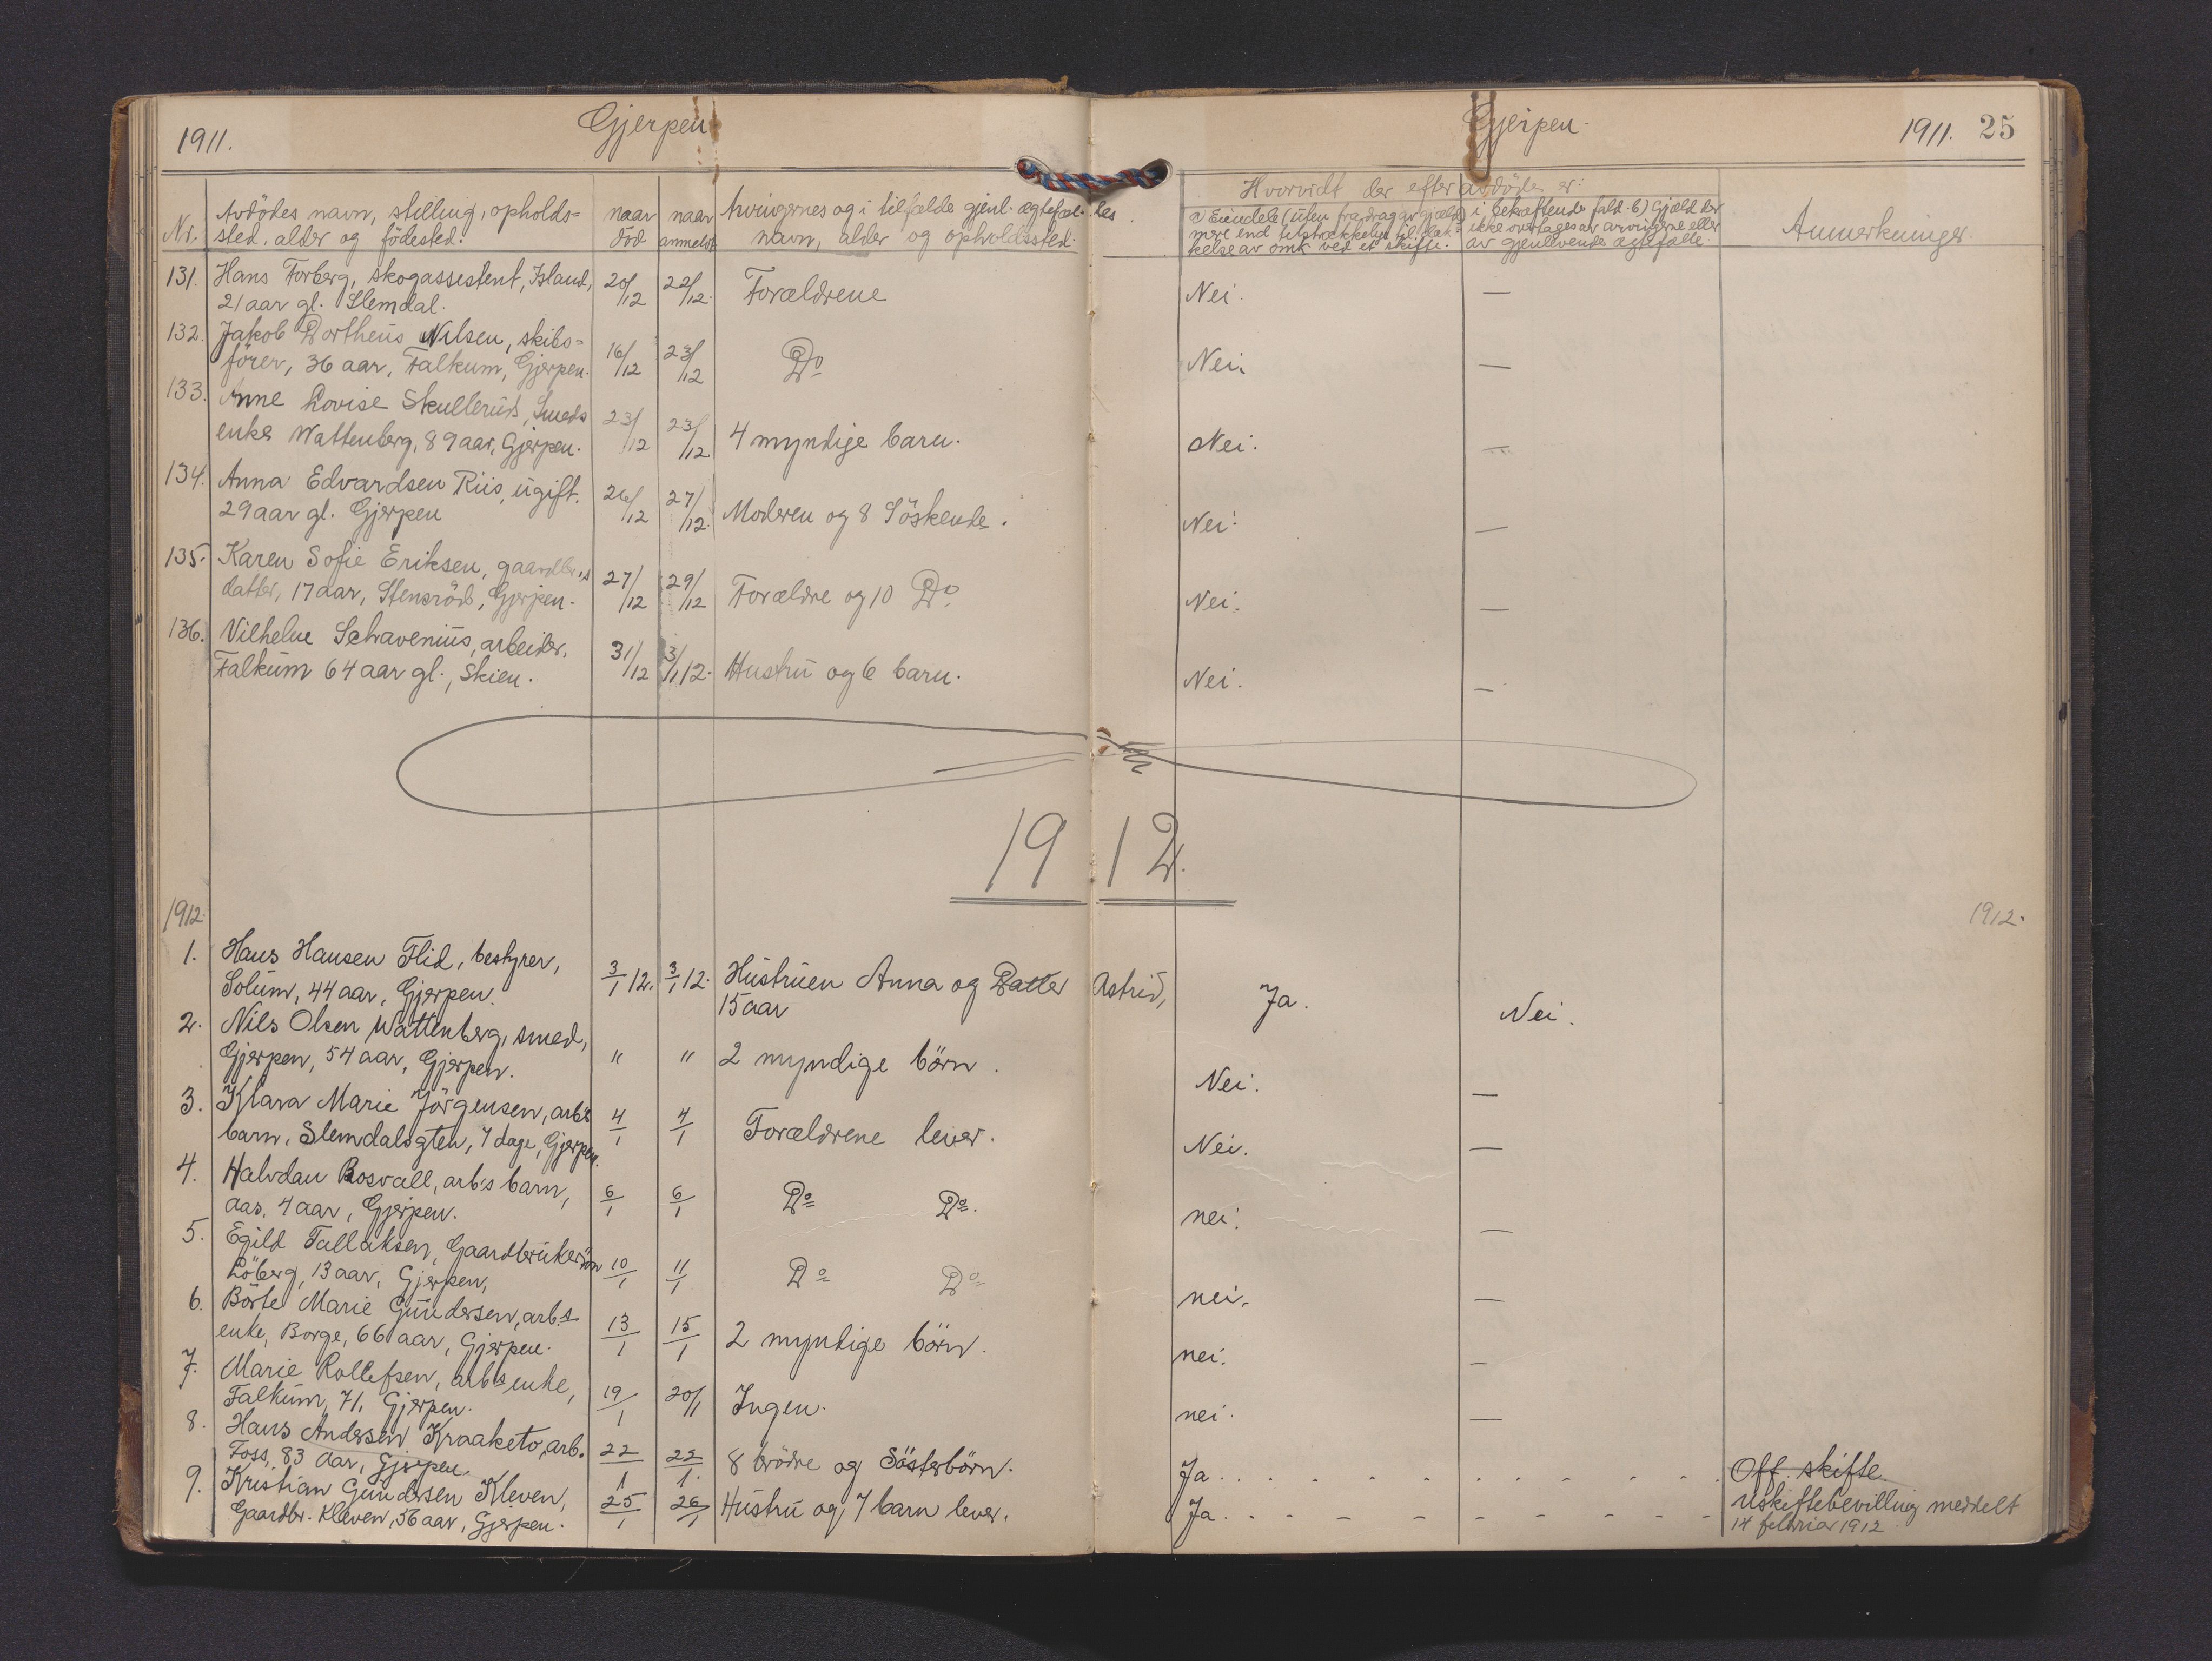 1911.
Gjerpen
Gjerpen
1911. 25
Nr.
Avdödes navn, stilling, opholds=
sted, alder og födested.
naar
död
naar
anmeldt
Arvingernes og i tilfælde gjenl. ægtefæl-les
navn, alder og opholdssted.
Hvorvidt der efter avdöde er:
a) Eiendele (uten fradrag av gjæld)
mere end tilstrækkelig til dæk-
kelse av omk. ved et skifte.
i bekræftende fald. b) Gjæld der
ikke overtages av arvingerne eller
av gjenlevende ægtefælle.
Anmerkninger.
131. Hans Forberg, skogassistent, Island,
21 aar gl. Slemdal.
20/12 22/12. Forældrene Nei. —
132. Jakob Dortheus Nilsen, skibs=
förer, 36 aar, Falkum, Gjerpen.
16/12 23/12 Do Nei. —
133. Anne Lovise Skullerud, Smeds
enke Wattenberg, 89 aar, Gjerpen.
23/12 23/12 4 myndige barn. Nei. —
134. Anna Edvardsen Riis, ugift.
29 aar gl. Gjerpen
26/12 27/12. Moderen og 8 Söskende. Nei. —
135. Karen Sofie Eriksen, gaardbr.s
datter, 17 aar, Stensröd, Gjerpen.
27/12 29/12 Forældre og 10 Do Nei. —
136. Vilhelm Schavenius, arbeider,
Falkum 64 aar gl., Skien.
31/12 3/1 12. Hustru og 6 barn. Nei. —
1912.
1912.
1912.
1. Hans Hansen Flid, bestyrer,
Solum, 44 aar, Gjerpen.
3/1 12. 3/1 12. Hustruen Anna og Datter Astrid,
15 aar
Ja. Nei.
2. Nils Olsen Wattenberg, smed,
Gjerpen, 54 aar, Gjerpen.
" " 2 myndige börn. Nei. —
3. Klara Marie Jörgensen, arb.s
barn, Slemdalsgten, 7 dage, Gjerpen.
4/1 4/1 Forældrene lever. Nei. —
4. Halvdan Bosvall, arb.s barn,
Aas, 4 aar, Gjerpen.
6/1 6/1 Do Do. nei. —
5. Egild Tallaksen, Gaardbrukersön
Löberg, 13 aar, Gjerpen,
10/1 11/1 Do Do nei. —
6. Börte Marie Gundersen, arb.s
enke, Borge, 66 aar, Gjerpen.
13/1 15/1 2 myndige börn. nei. —
7. Marie Rollefsen, arb.s enke,
Falkum, 71, Gjerpen.
19/1 20/1 Ingen. nei. —
8. Hans Andersen Kraaketo, arb.
Foss, 83 aar, Gjerpen
22/1 22/1. 8 brödre og Sösterbörn. Ja. Off. skifte.
9. Kristian Gundersen Kleven,
Gaardbr. Kleven, 56 aar, Gjerpen.
25/1 26/1 Hustru og 7 barn lever. Ja. Uskiftebevilling meddelt
14 februar 1912.